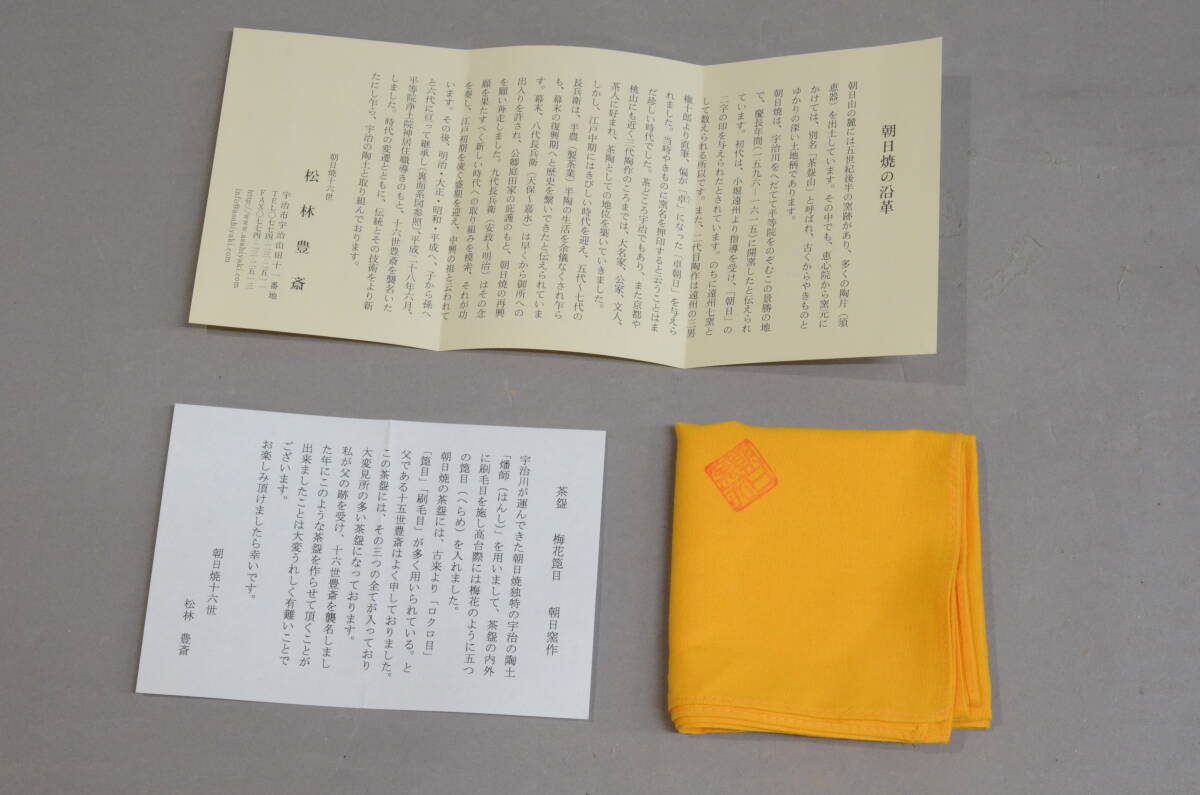 朝日焼の沿革
朝日山の麓には五世紀後半の窯跡があり、多くの陶片（須
恵器）を出土しています。その中でも、恵心院から窯元に
かけては、別名「茶盌山」と呼ばれ、古くからやきものと
ゆかりの深い土地柄であります。
朝日焼は、宇治川をへだてて平等院をのぞむこの景勝の地
で、慶長年間（一五九六‐一六一五）に開窯したと伝えられ
ています。初代は、小堀遠州より指導を受け、「朝日」の
二字の印を与えられたとされています。のちに遠州七窯と
して数えられる所以です。また、二代目陶作は遠州の三男
権十郎より直筆、偏が「卓」になった「卓朝日」を与えら
れました。当時やきものに窯名を押印すると云うことはま
だ珍しい時代でした。茶どころ宇治でもあり、また京都や
桃山にも近く三代陶作のころまでは、大名家、公家、文人、
茶人に好まれ、茶陶としての地位を築いていきました。
しかし、江戸中期にはきびしい時代を迎え、五代〜七代の
長兵衛は、半農（製茶業）半陶の生活を余儀なくされ乍ら
も、幕末の復興期へと歴史を繋いできたと伝えられていま
す。幕末、八代長兵衛（天保〜嘉永）は早くから御所への
出入りを許され、公卿庭田家の庇護のもと、朝日焼の再興
を願い奔走しました。九代長兵衛（安政〜明治）はその念
願を果たすべく新しい時代への取り組みを模索、それが功
を奏し、江戸初期を凌ぐ盛願を迎え、中興の祖と伝われて
います。その後、明治・大正・昭和・平成へ、子から孫へ
と六代に亘って継承し（裏面系図参照）、平成二十八年六月、
平等院浄土院神居住職導きのもと、十六世豊斎を襲名いた
しました。時代の変遷とともに、伝統とその技術をより新
たにし乍ら、宇治の陶土と取り組んでおります。
朝日焼十六世
松林豊斎
宇治市宇治山田十一番地
TEL〇七七四-二三-二五一一
FAX〇七七四-二三-二五一三
http://www.asahiyaki.com
info@asahiyaki.com
茶盌　梅花箆目　朝日窯作
宇治川が運んできた朝日焼独特の宇治の陶土
「燔師（はんし）」を用いまして、茶盌の内外
に刷毛目を施し高台際には梅花のように五つ
の箆目（へらめ）を入れました。
朝日焼の茶盌には、古来より「ロクロ目」
「箆目」「刷毛目」が多く用いられている。と
父である十五世豊斎はよく申しておりました。
この茶盌には、その三つの全てが入っており
大変見所の多い茶盌になっております。
私が父の跡を受け、十六世豊斎を襲名しまし
た年にこのような茶盌を作らせて頂くことが
出来ましたことは大変うれしく有難いことで
ございます。
お楽しみ頂けましたら幸いです。
朝日焼十六世
松林　豊斎